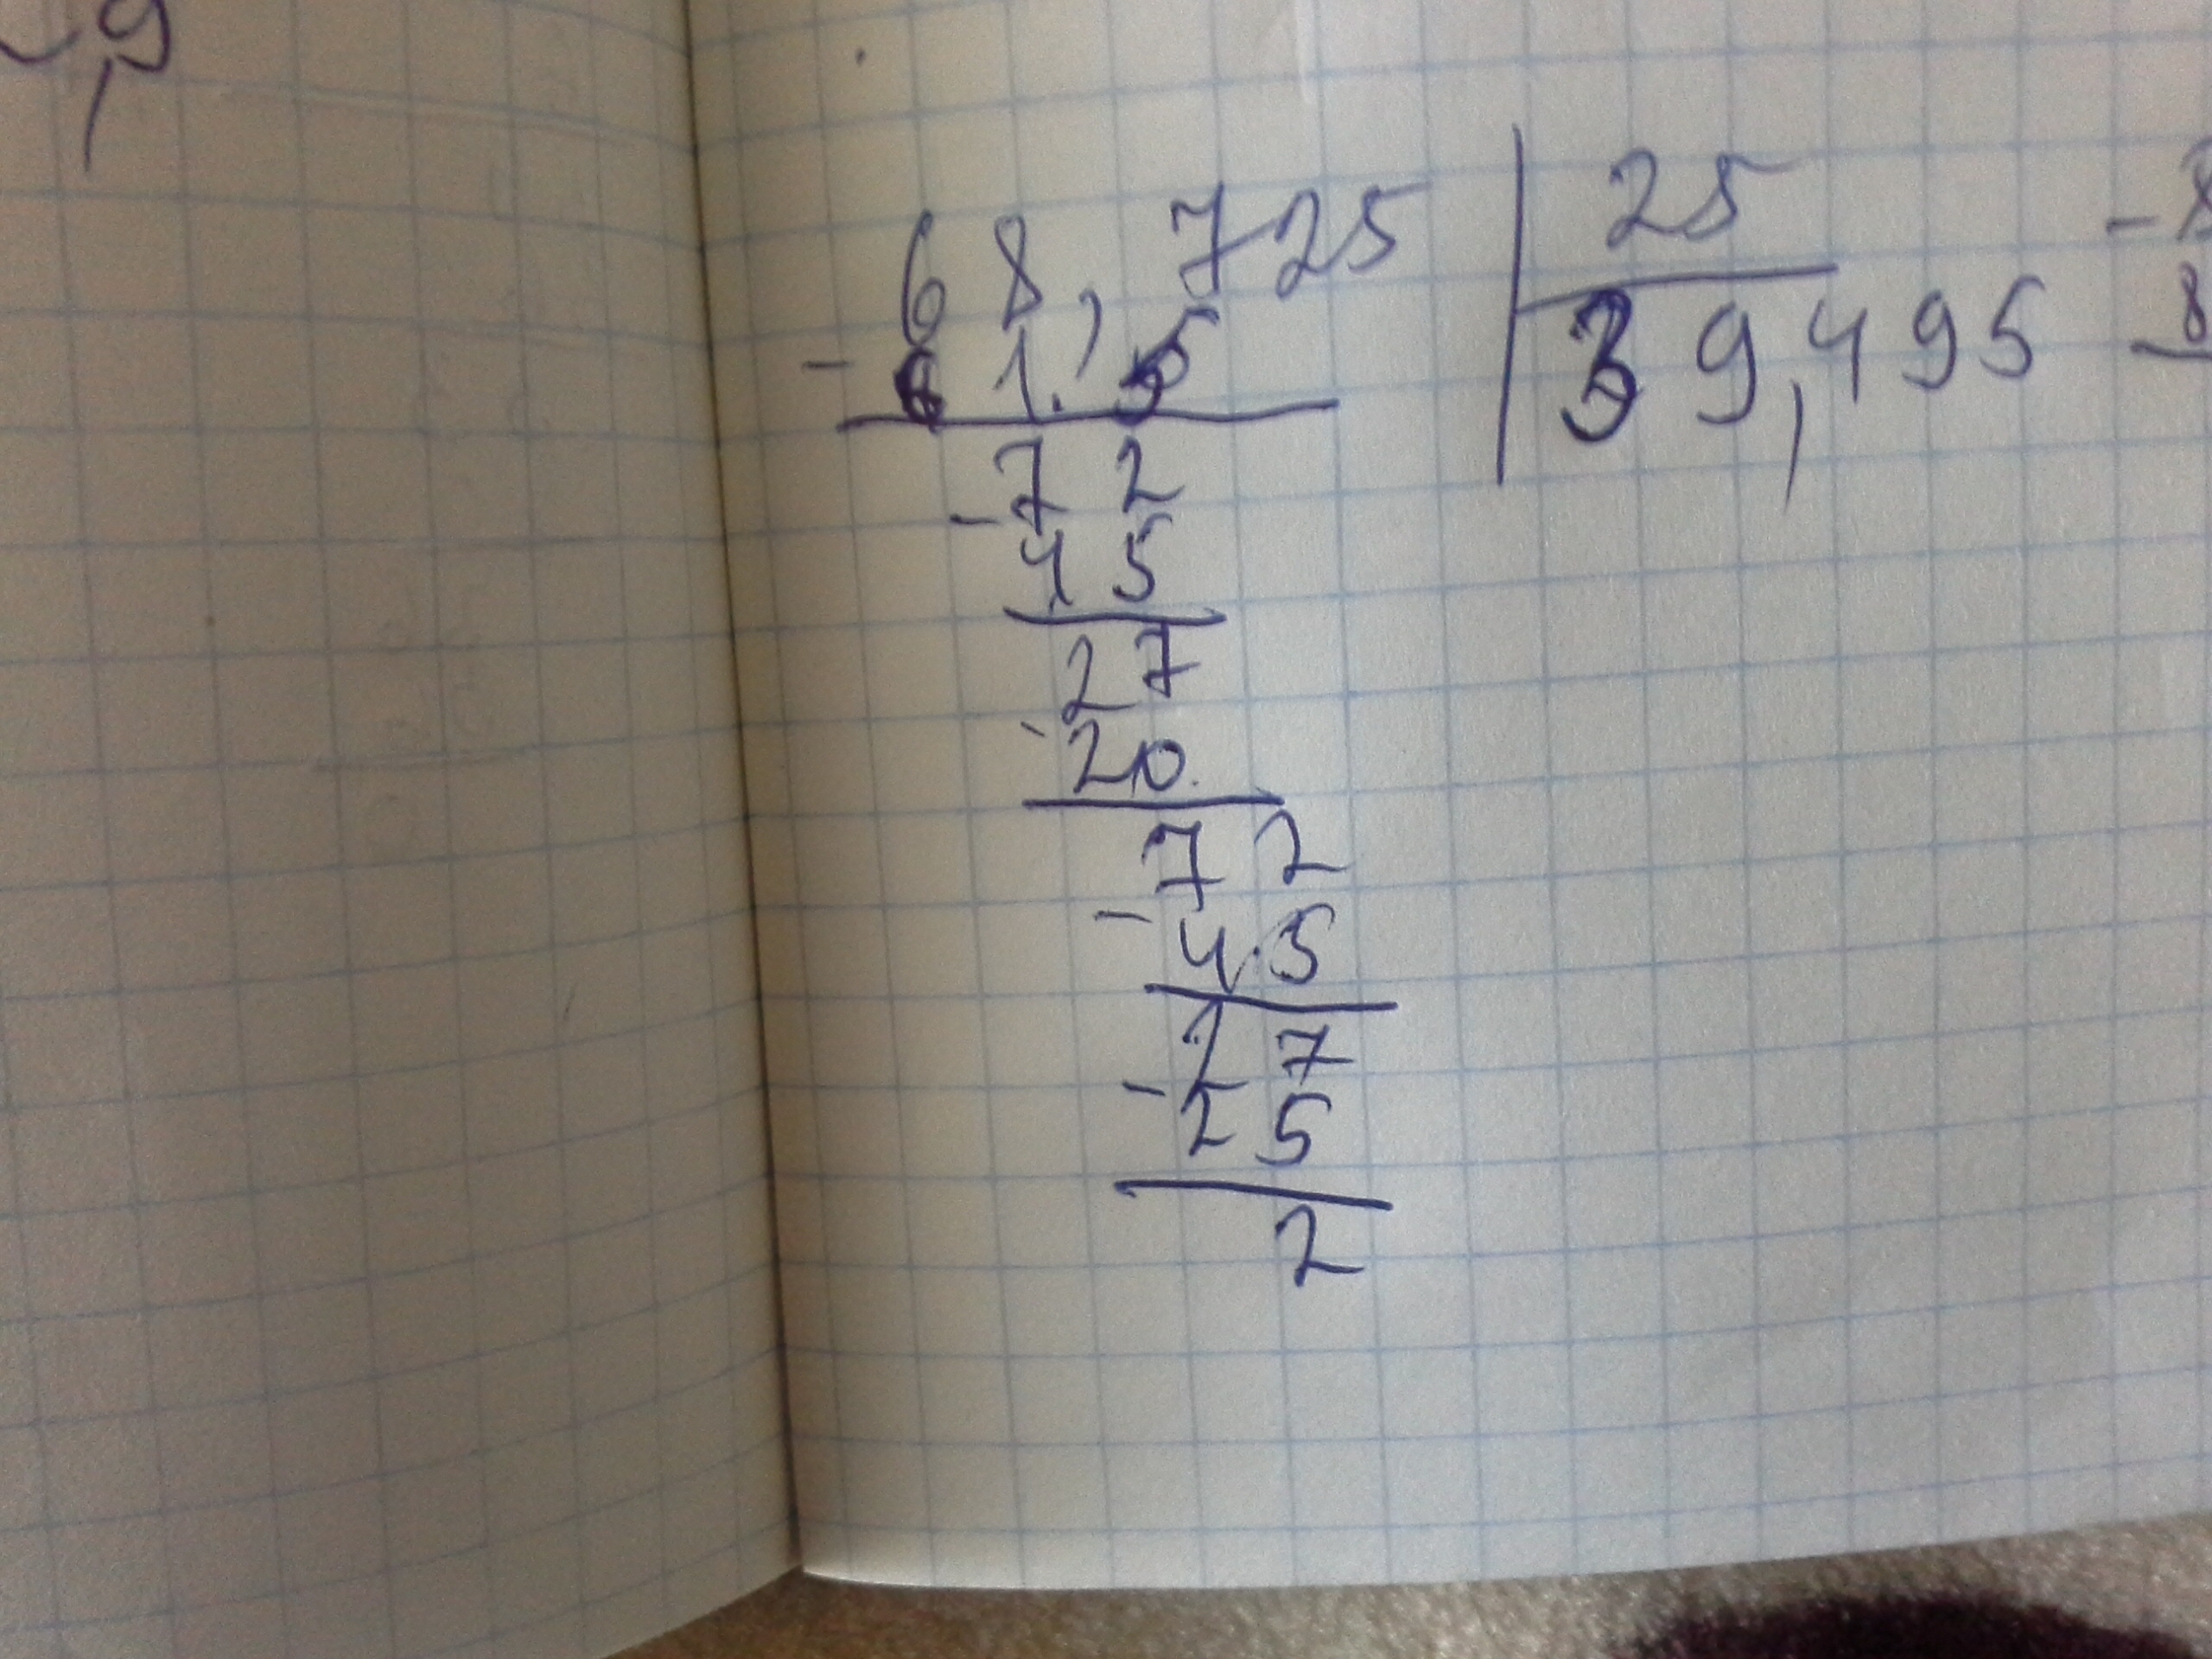 9,
68,725 | 25
- 61.5 | 39,495
72
- 45
27
- 20
72
- 45
27
- 25
2
- 8
8